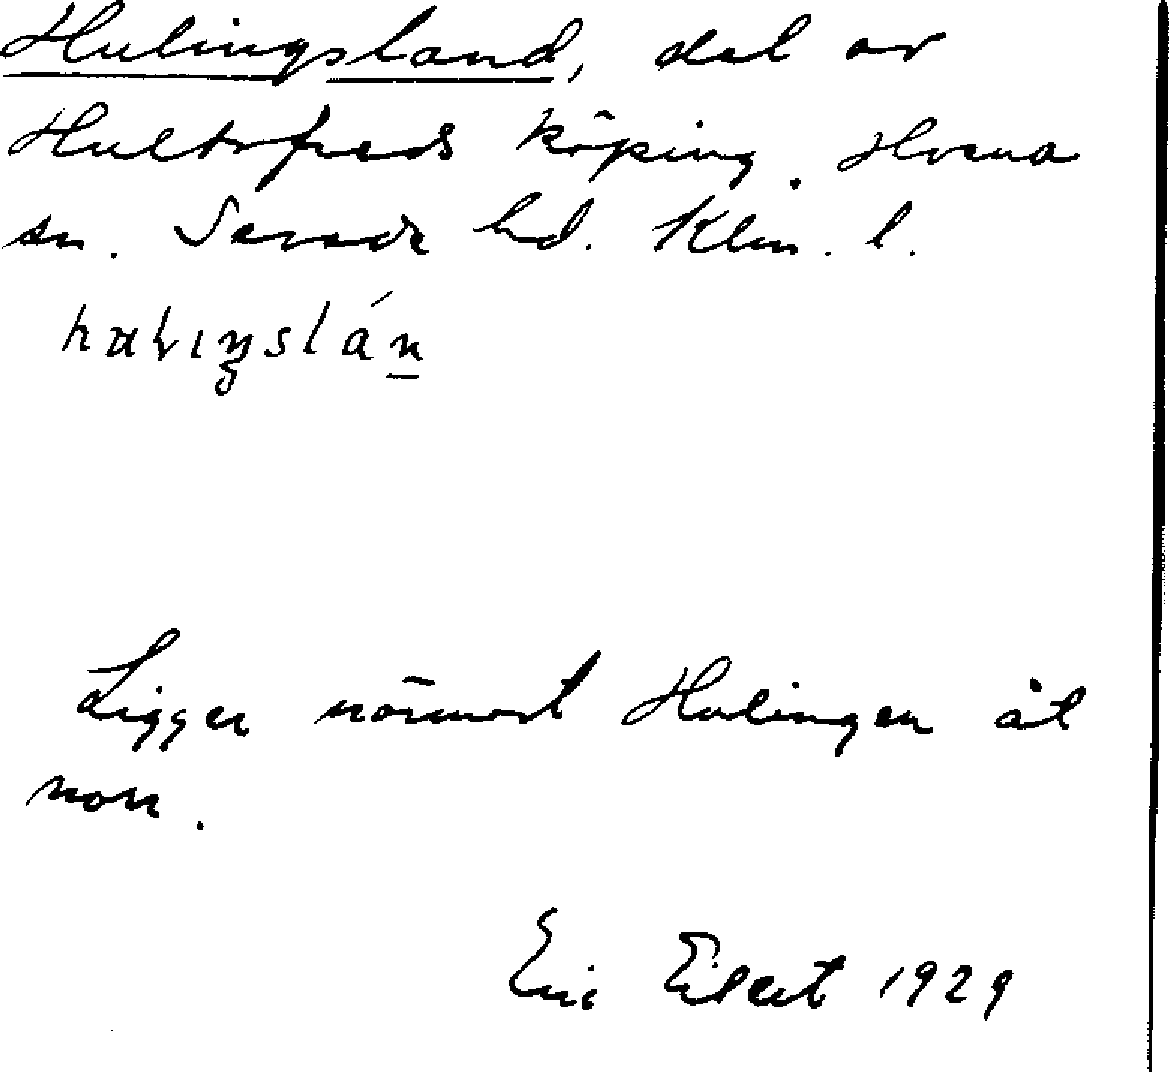 Hulingsland, del av
Hultsfreds köping. Hvena
sn. Sevede hd. Klm. l.
Ligger närmast Hulingen åt
norr.
Eric Eilert 1929